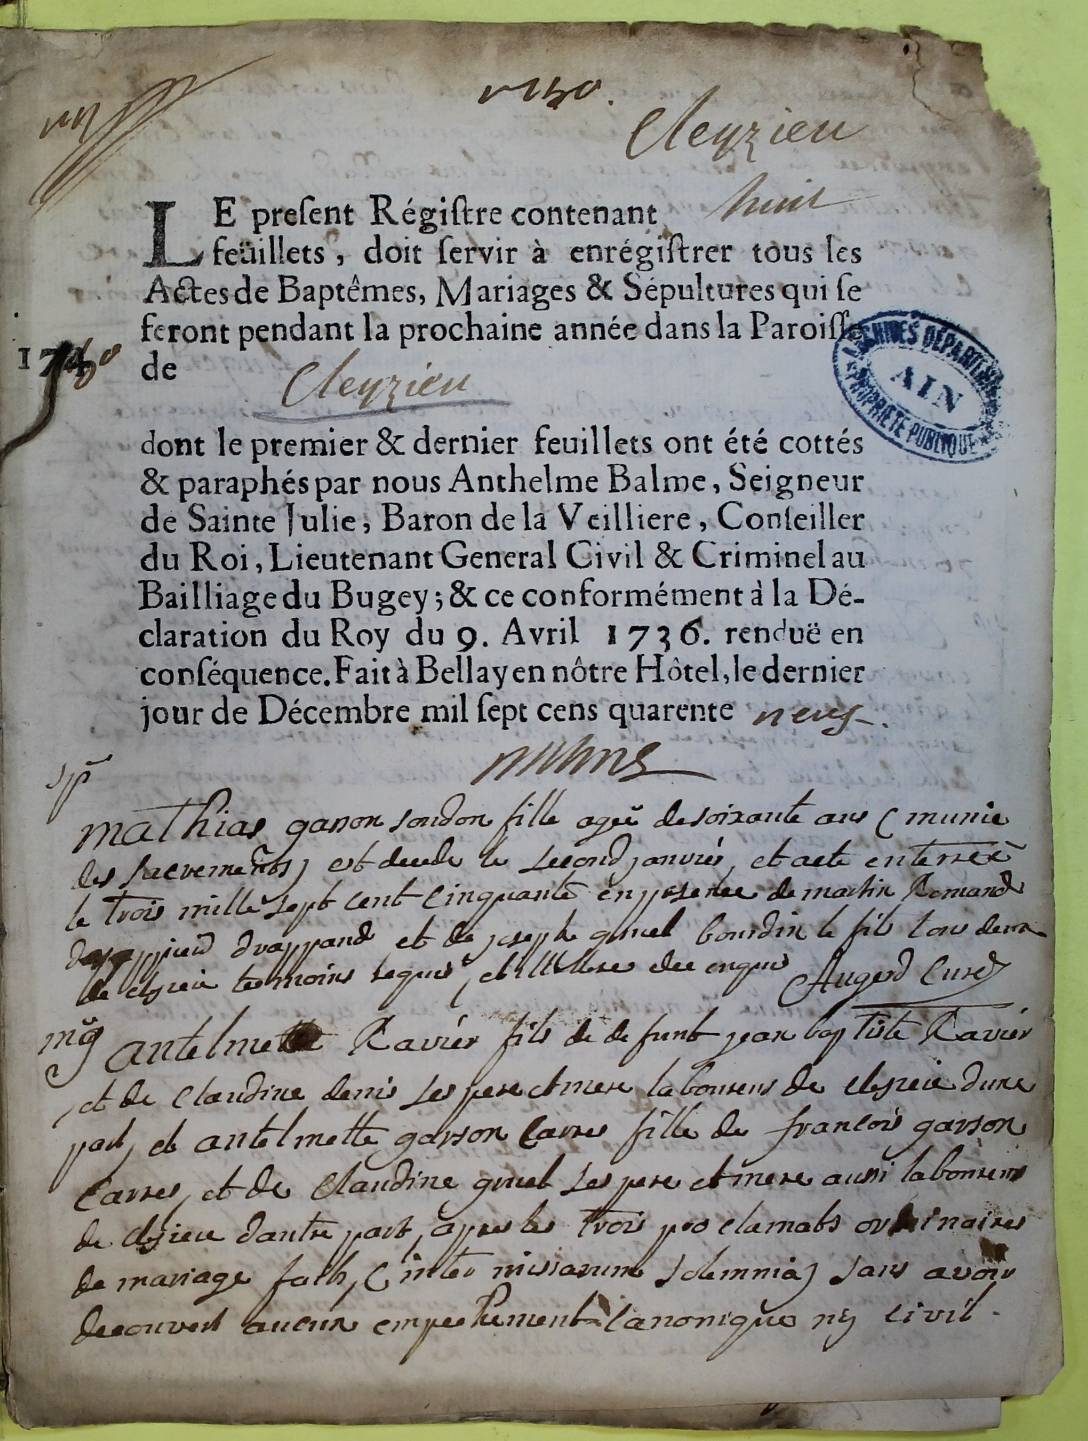 1750.
Cleyzieu
LE present Régistre contenant huit
feüillets, doit servir à enrégistrer tous les
Actes de Baptêmes, Mariages & Sépultures qui se
feront pendant la prochaine année dans la Paroisse
de Cleyzieu
ARCHIVES DÉPARTEM
AIN
PROPRIÉTÉ PUBLIQUE
dont le premier & dernier feuillets ont été cottés
& paraphés par nous Anthelme Balme, Seigneur
de Sainte Julie, Baron de la Veilliere, Conseiller
du Roi, Lieutenant General Civil & Criminel au
Bailliage du Bugey; & ce conformément à la Dé-
claration du Roy du 9. Avril 1736. renduë en
conséquence. Fait à Bellay en nôtre Hôtel, le dernier
jour de Décembre mil sept cens quarente neuf.
mathias garson fille de soixante ans (munie
des sacrements) est le second janvier, et aeté enterreé
le trois mille sept cent cinquante en presence de martin Romand
et de joseph gruel bourdin le fils tous deux
de temoins requis, et enquis Augerd Curé
antelme Ravier fils de defunt jean baptiste Ravier
et de Claudine denis ses pere et mere laboureurs de dune
part, et antelmette garson Carres fille de francois garson
Carres, et de Claudine gruel ses pere et mere aussi laboureurs
de dautre part, apres les trois proclamats ordinaires
de mariage faits, (inter missarum solemnia) sans avoir
decouvert aucun empechement Canonique ny civil